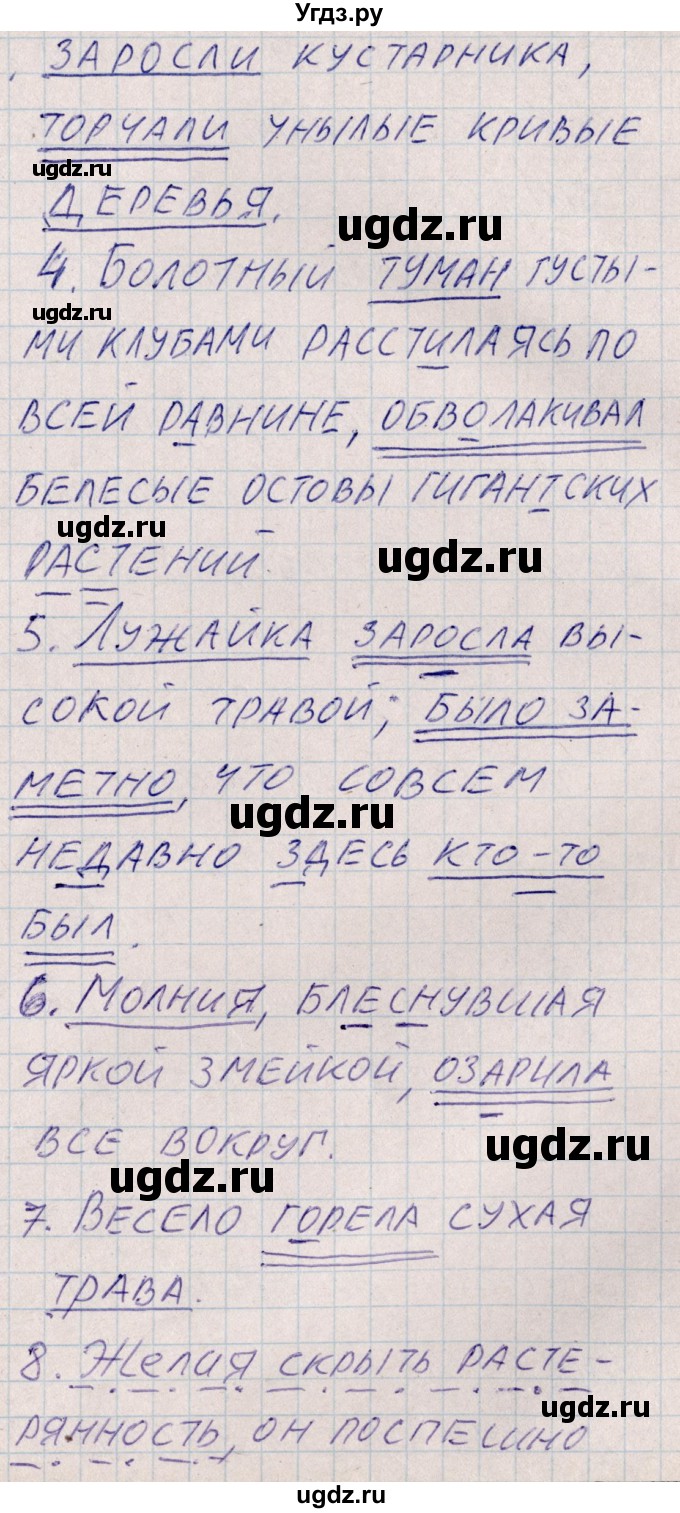 Угдз.ру
, ЗАРОСЛИ КУСТАРНИКА,
ТОРЧАЛИ УНЫЛЫЕ КРИВЫЕ
ugdz.ru
ДЕРЕВЬЯ.
ugdz.ru
4. БОЛОТНЫЙ ТУМАН ГУСТЫ-
ugdz.ru
МИ КЛУБАМИ РАССТИЛАЯСЬ ПО
ВСЕЙ РАВНИНЕ, ОБВОЛАКИВАЛ
БЕЛЕСЫЕ ОСТОВЫ ГИГАНТСКИХ
ugdz.ru
РАСТЕНИЙ.
ugdz.ru
5. ЛУЖАЙКА ЗАРОСЛА ВЫ-
СОКОЙ ТРАВОЙ; БЫЛО ЗА-
МЕТНО, ЧТО СОВСЕМ
ugdz.ru
НЕДАВНО ЗДЕСЬ КТО-ТО
БЫЛ.
ugdz.ru
6. МОЛНИЯ, БЛЕСНУВШАЯ
ЯРКОЙ ЗМЕЙКОЙ, ОЗАРИЛА
ВСЕ ВОКРУГ.
ugdz.ru
ugdz.ru
7. ВЕСЕЛО ГОРЕЛА СУХАЯ
ТРАВА.
8. Желая СКРЫТЬ РАСТЕ-
ugdz.ru
РЯННОСТЬ, ОН ПОСПЕШНО
ugdz.ru